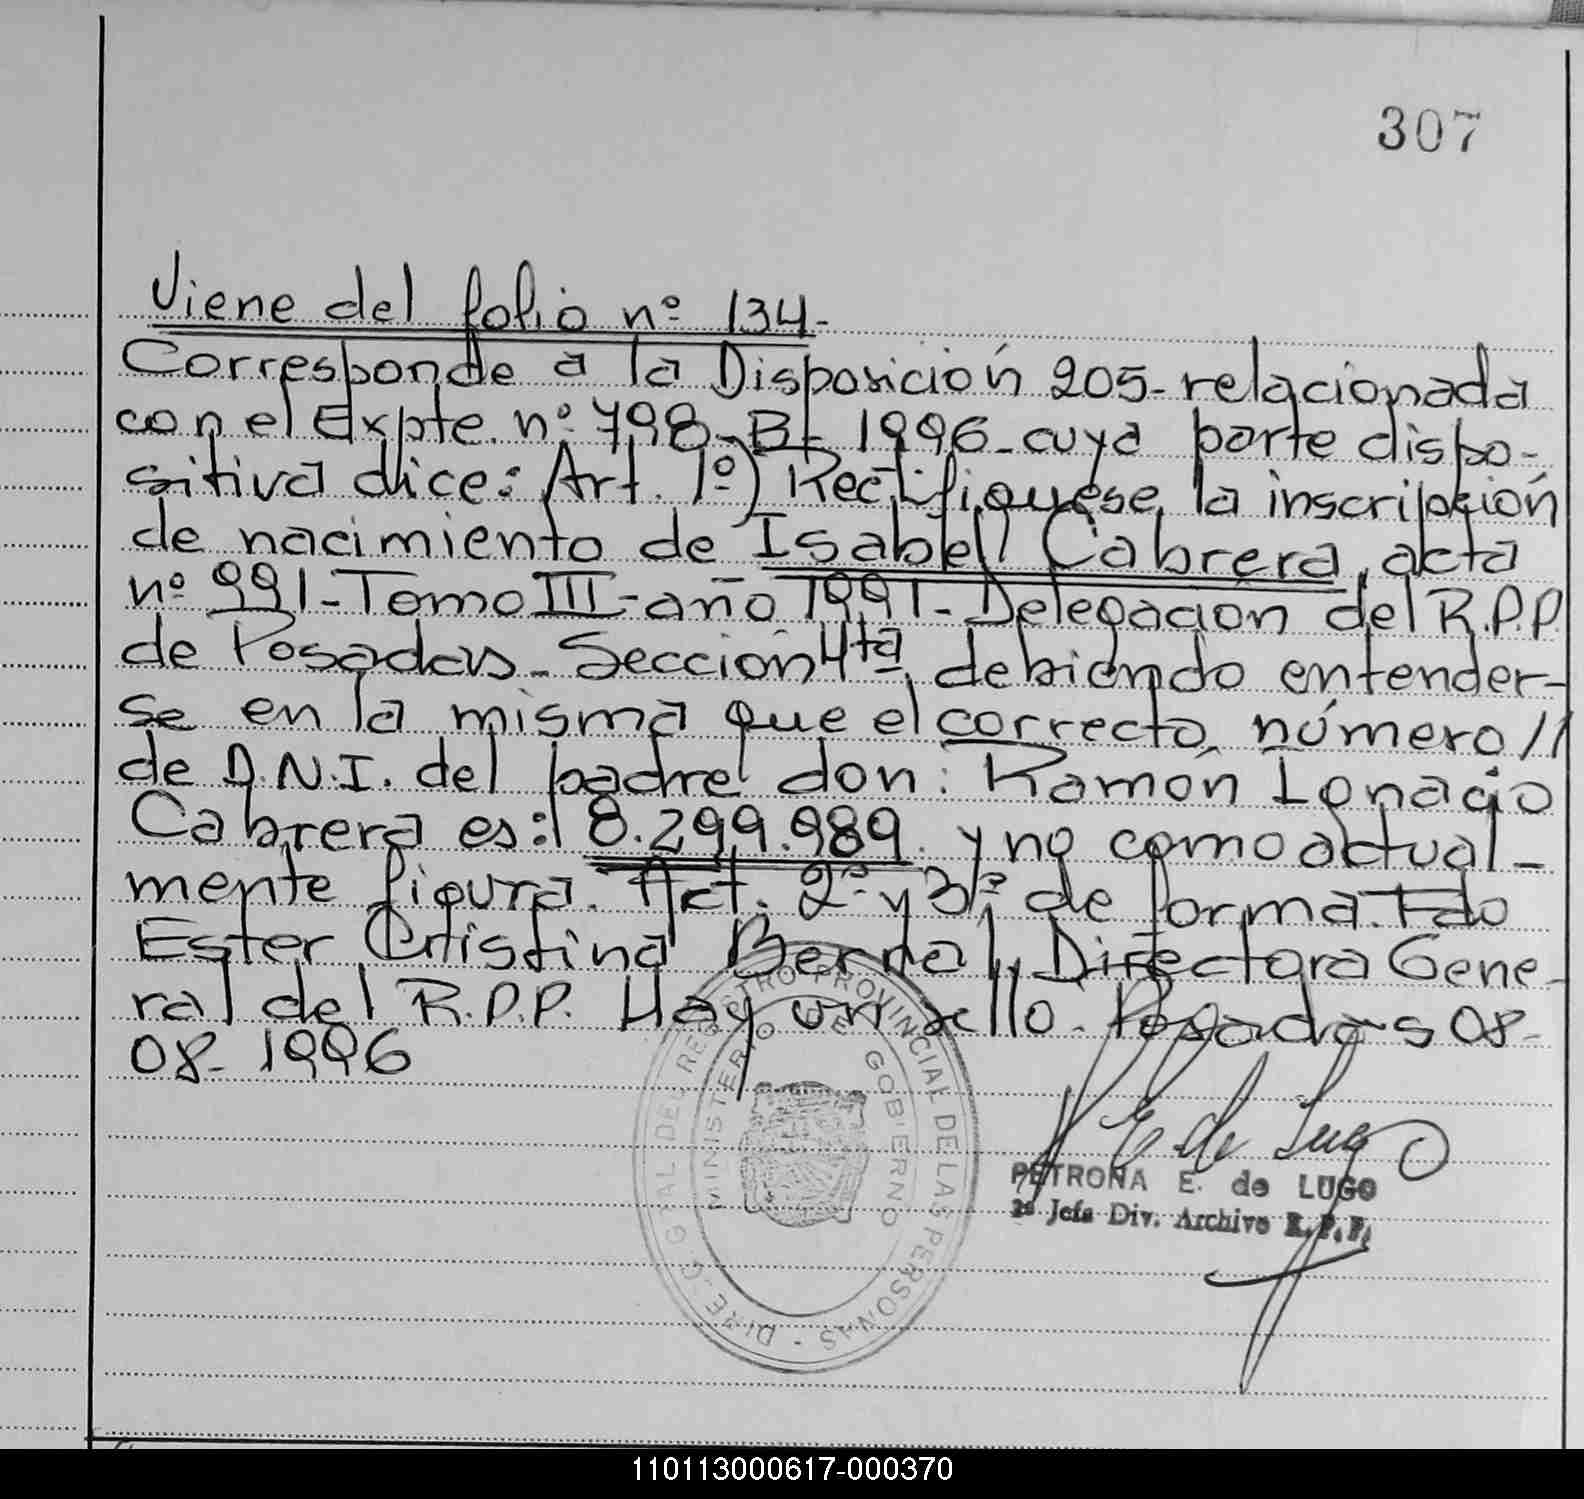 307
Viene del folio nº 134-
Corresponde a la Disposición 205- relacionada
con el Expte. nº 798- B- 1996- cuya parte dispo-
sitiva dice: Art. 1º) Rectifíquese la inscripción
de nacimiento de Isabel Cabrera, acta
nº 991- Tomo III- año 1991- Delegación del R.P.P.
de Posadas- Sección 4ta, debiendo entender-
se en la misma que el correcto número //
de D.N.I. del padre don: Ramón Ignacio
Cabrera es: 8.299.989. y no como actual-
mente figura. Act. 2º y 3º: de forma. Fdo
Ester Cristina Bernal, Directora Gene-
ral del R.P.P. Hay un sello. Posadas 08-
08- 1996
DIREC. GRAL DEL REGISTRO PROVINCIAL DE LAS PERSONAS -
MINISTERIO DE GOBIERNO
E de Lugo
PETRONA E. de LUGO
2º Jefa Div. Archivo R.P.P.
110113000617-000370